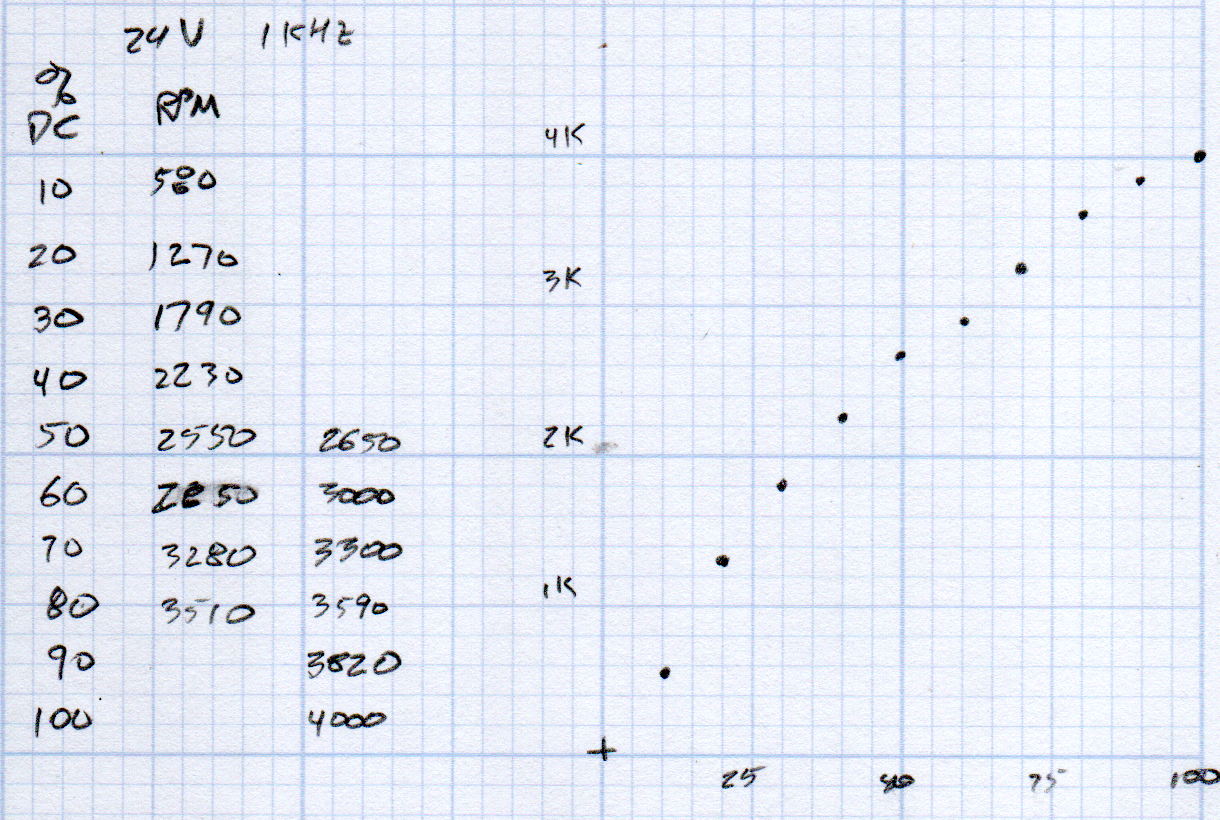 24V 1KHz
%
DC RPM
4K
10 580
20 1270
3K
30 1790
40 2230
50 2550 2650
2K
60 2850 3000
70 3280 3300
1K
80 3510 3590
90 3820
100 4000
+
25 50 75 100